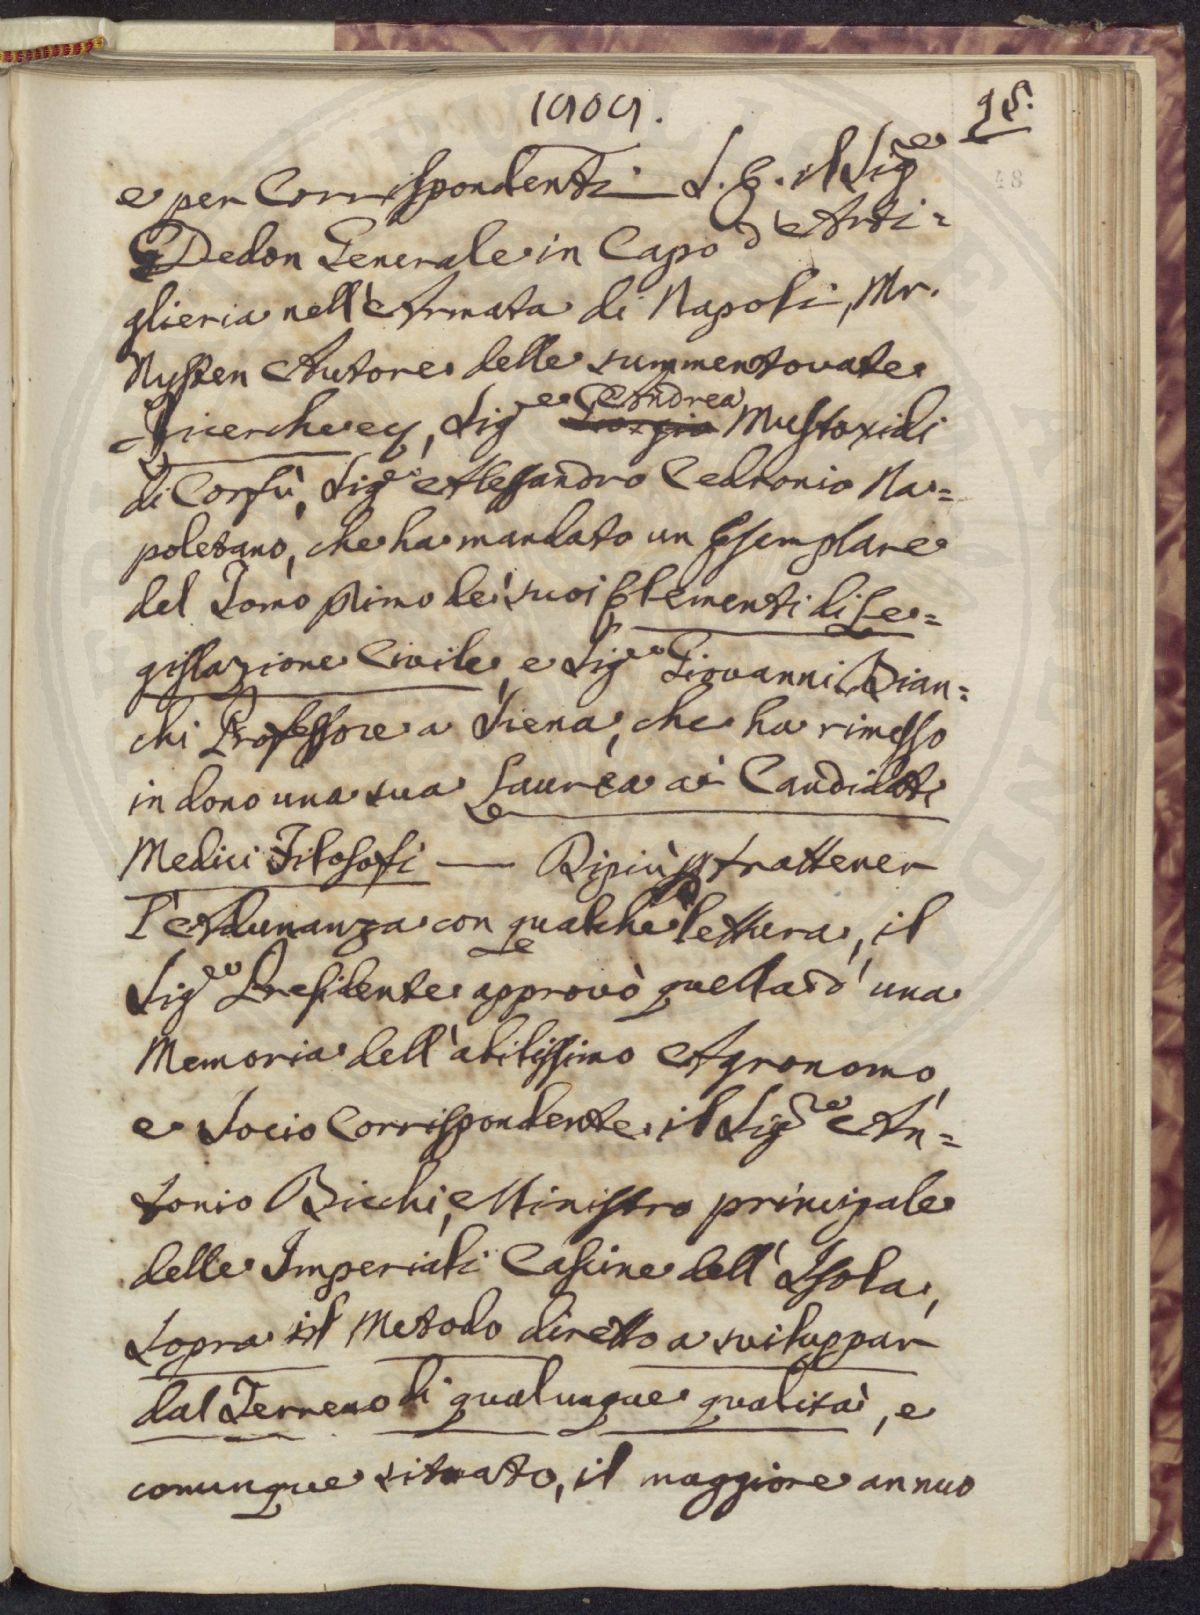 1909.
95.
48
e per Corrispondenti S. E. il Sig.re
Dedon Generale in Capo d'Arti=
glieria nell'Armata di Napoli, Mr.
Nysten Autore delle summentovate
Ricerche ec., Sig.re Andrea Mustoxidi
di Corfù, Sig.re Alessandro Cedronio Na=
poletano, che ha mandato un Esemplare
del Tomo primo de' suoi Elementi di Le=
gislazione Civile, e Sig.re Giovanni Bian=
chi Professore a Siena, che ha rimesso
in dono una sua Laurea ai Candidati
Medici Filosofi — Di più trattener
l'Adunanza con qualche lettura, il
Sig.re Presidente approvò quella d' una
Memoria dell'abilissimo Agronomo,
e Socio Corrispondente il Sig.re An=
tonio Bicchi, Ministro principale
delle Imperiali Cascine dell' Isola,
Sopra il Metodo diretto a sviluppar
dal Terreno di qualunque qualità, e
comunque situato, il maggiore annuo